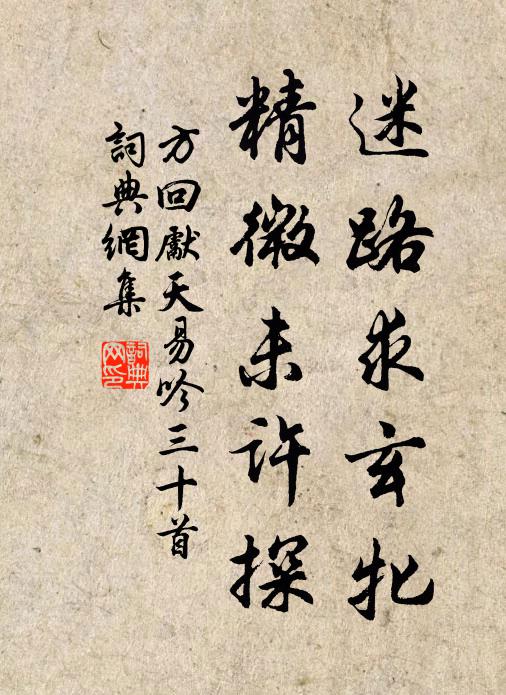 迷路求玄牝
精微未许探
方回獻天易吟三十首
詞典網集
詞典網印